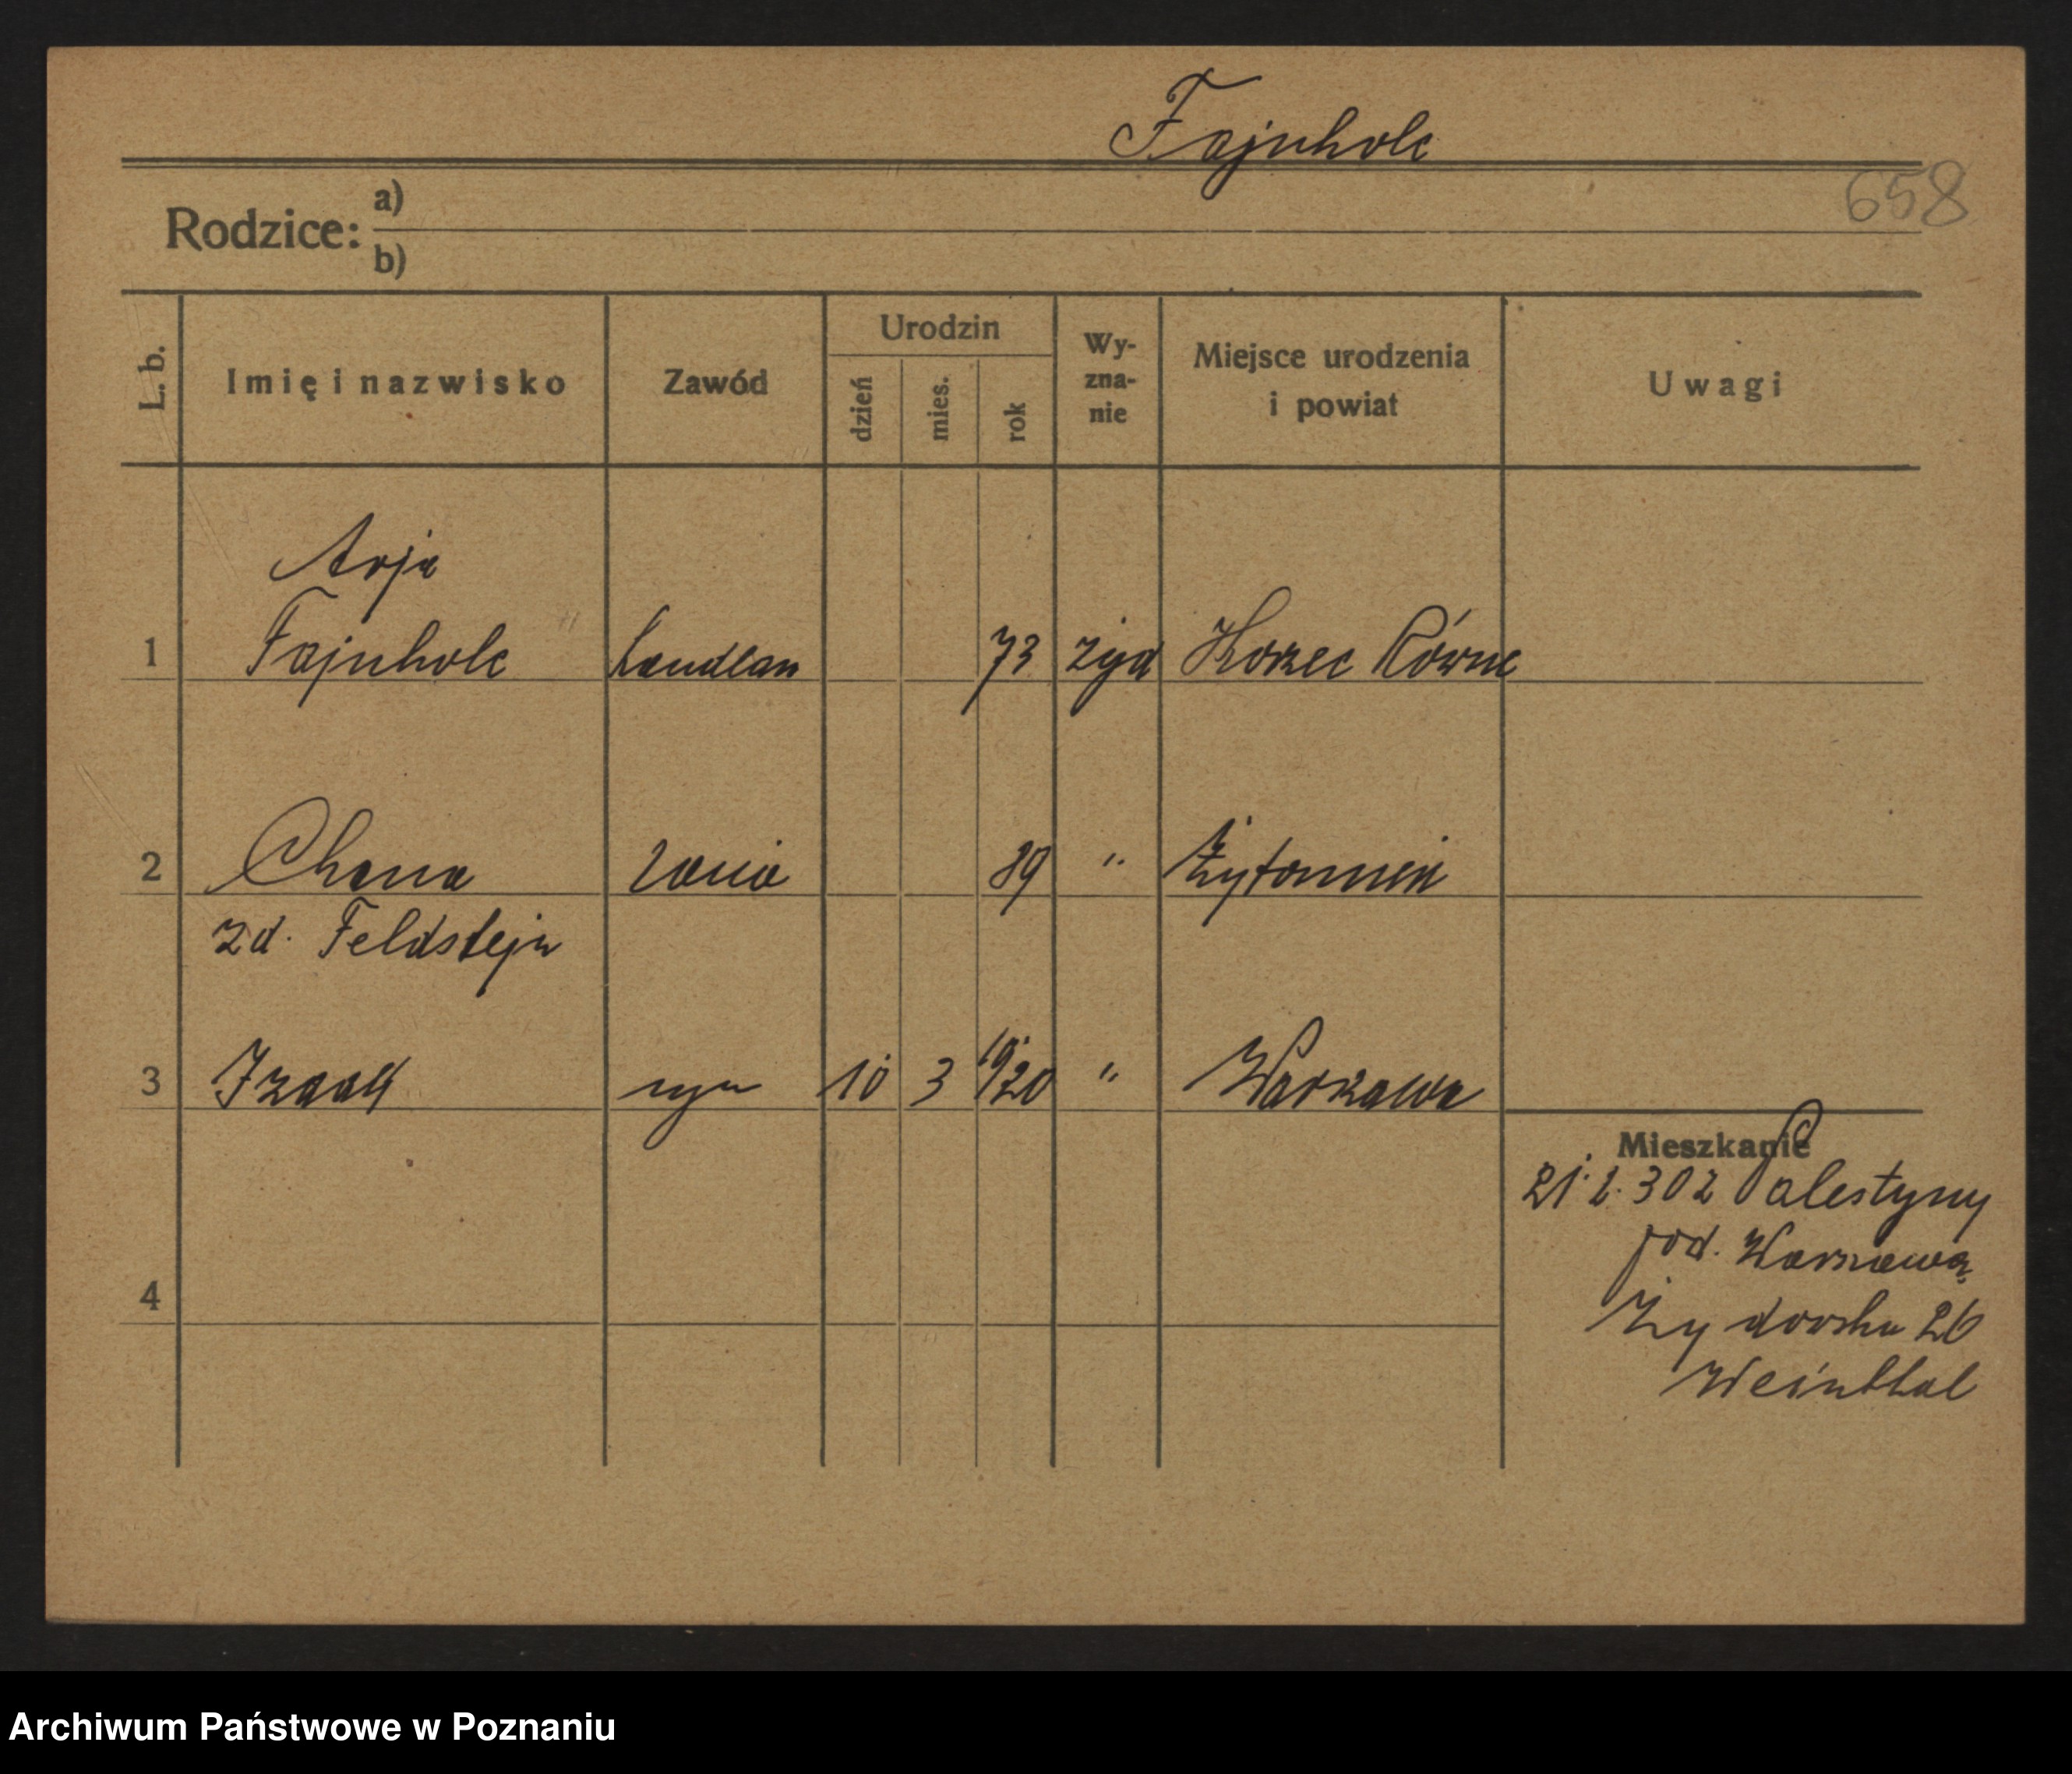 Fajnholc
658
Rodzice: a)
b)
L. b. Imię i nazwisko Zawód Urodzin dzień mies. rok Wy-zna-nie Miejsce urodzenia i powiat Uwagi
Arja
1 Fajnholc handlarz 73 żyd Korzec Równe
2 Chana żona 89 " Żytomień
zd. Feldstejn
3 Izaak syn 10 3 1920 " Warszawa
Mieszkanie
21.2.30 z Palestyny
pod. Warszawą
4
Żydowska 26
Weinthal
Archiwum Państwowe w Poznaniu